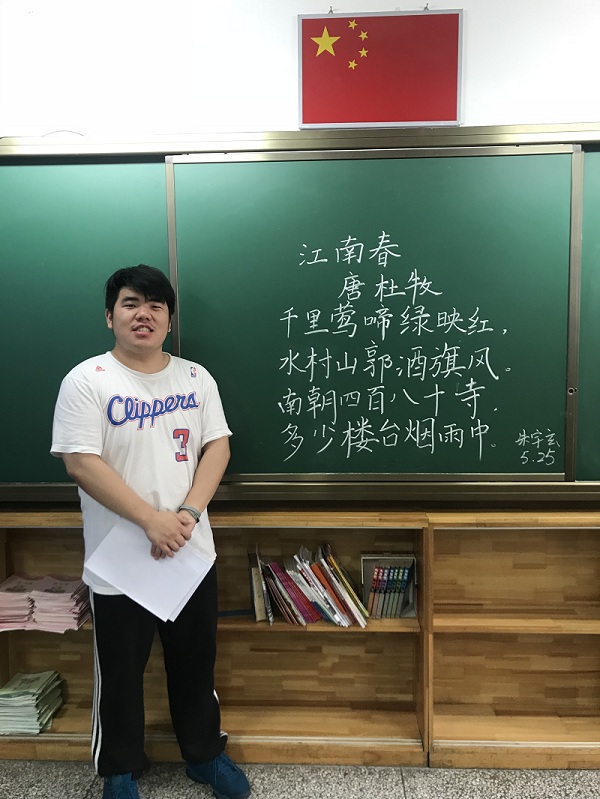 江南春
唐 杜牧
千里莺啼绿映红，
水村山郭酒旗风。
南朝四百八十寺，
多少楼台烟雨中。
朱宇玄
5.25
Clippers
3